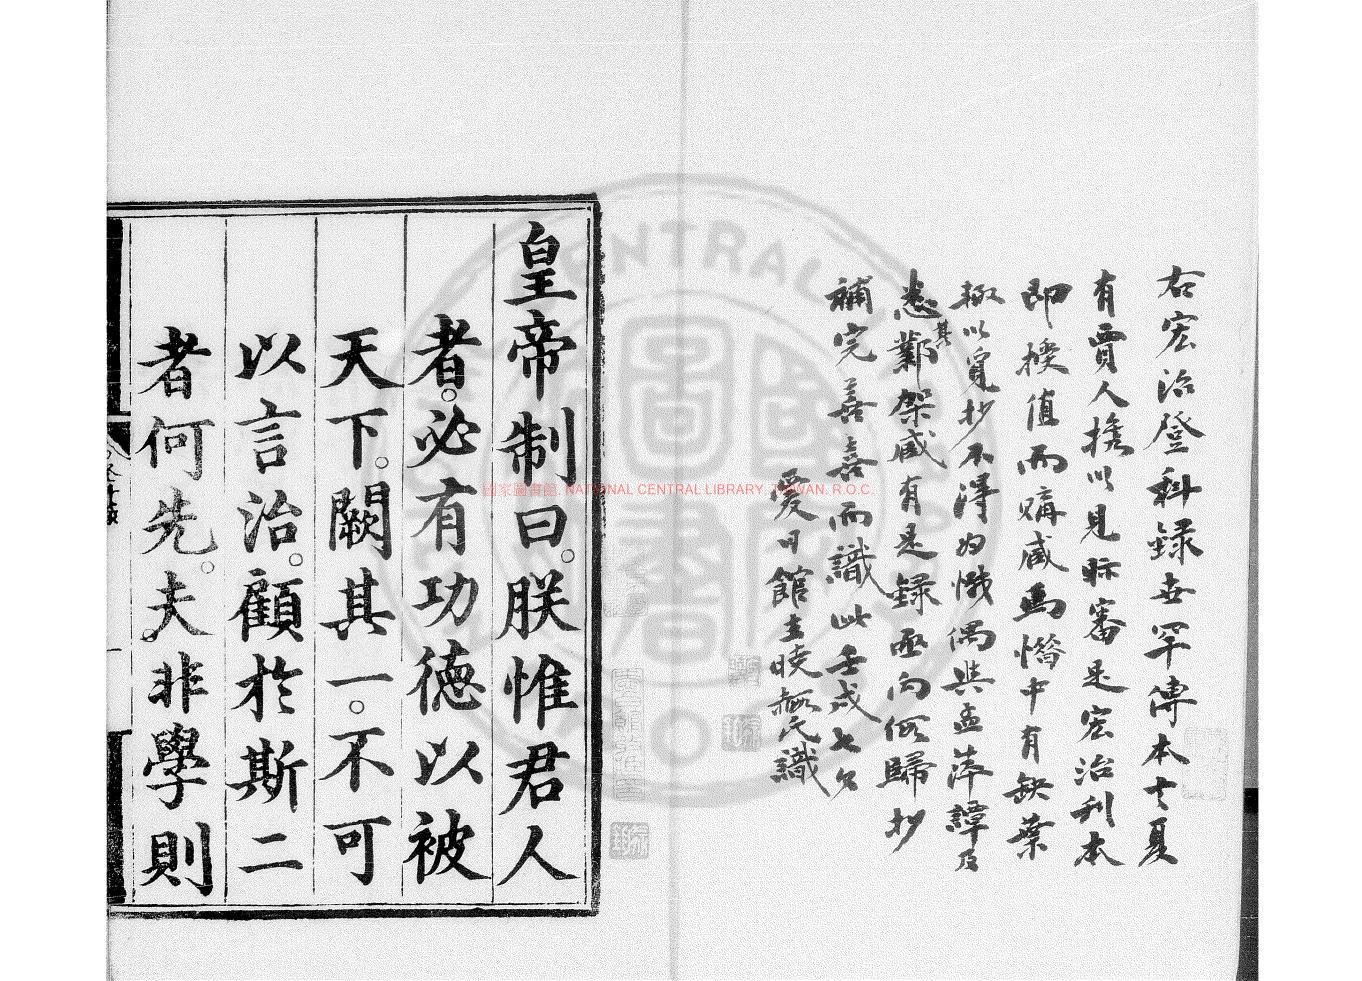 右宏治登科録世罕傳本七夏
有賈人攜以見眎審是宏治刊本
即授值而購藏焉惜中有缺葉
極以寬抄不得為慽偶與孟萍譚及
悉其鄴架咸有是録亟向假歸抄
補完善喜而識此壬戌七夕
愛日館主曉
氏識
皇帝制曰朕惟君人
者必有功德以被
天下闕其一不可
以言治顧於斯二
者何先夫非學則
國家圖書館, NATIONAL CENTRAL LIBRARY, TAIWAN, R.O.C.